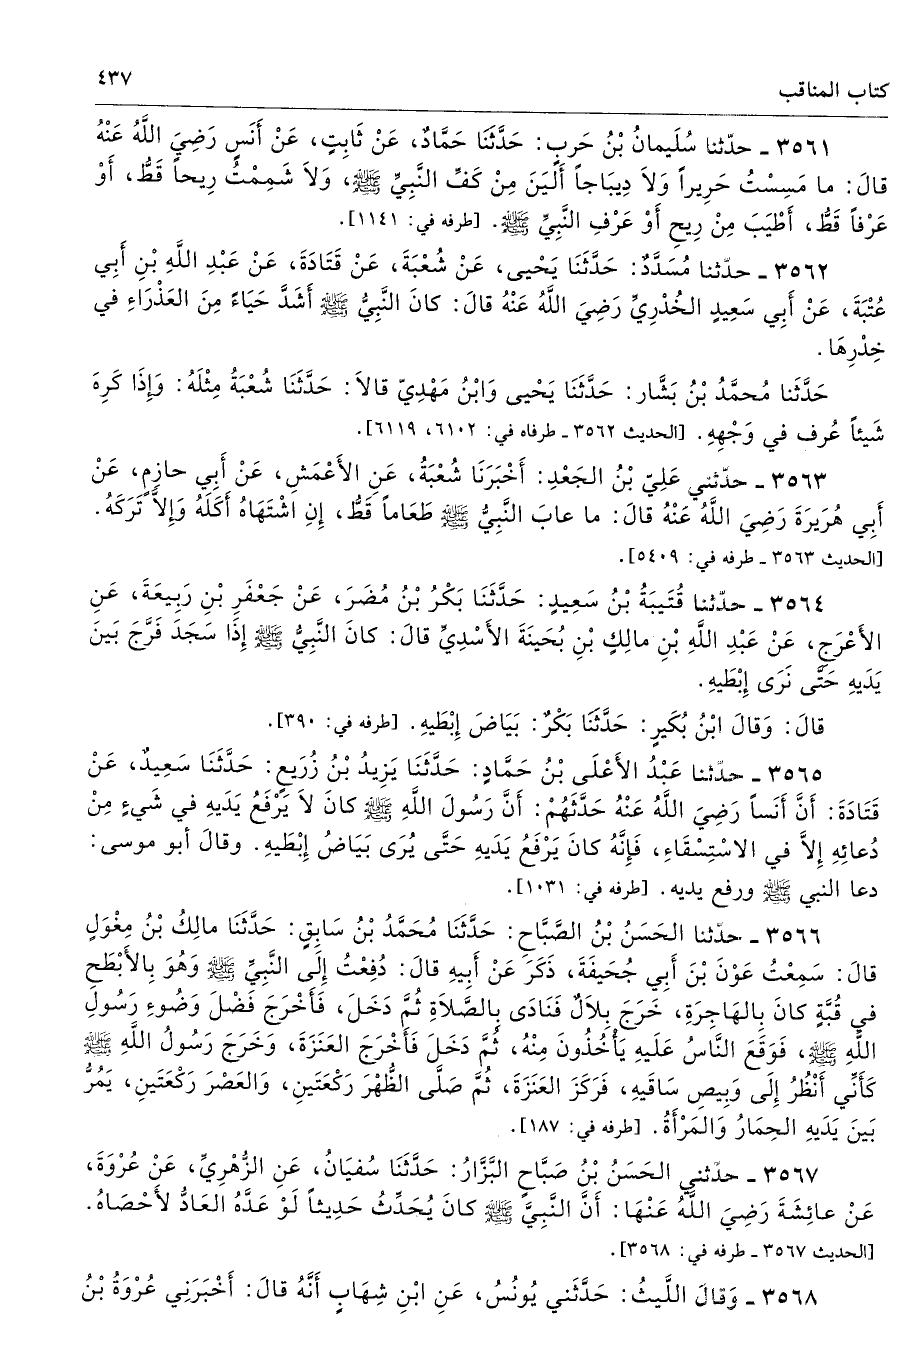 كتاب المناقب ٤٣٧
٣٥٦١ ـ حدّثنا سُلَيمانُ بْنُ حَربٍ: حَدَّثَنَا حَمَّادٌ، عَنْ ثَابِتٍ، عَنْ أَنَسٍ رَضِيَ اللَّهُ عَنْهُ
قالَ: ما مَسِسْتُ حَرِيراً وَلاَ دِيبَاجاً أَليَنَ مِنْ كَفِّ النَّبِيِّ ﷺ، وَلاَ شَمِمْتُ رِيحاً قَطُّ، أَوْ
عَرْفاً قَطُّ، أَطْيَبَ مِنْ رِيحِ أَوْ عَرْفِ النَّبِيِّ ﷺ. [طرفه في: ١١٤١].
٣٥٦٢ ـ حدّثنا مُسَدَّدٌ: حَدَّثَنَا يَحْيى، عَنْ شُعْبَةَ، عَنْ قَتَادَةَ، عَنْ عَبْدِ اللَّهِ بْنِ أَبِي
عُتْبَةَ، عَنْ أَبِي سَعِيدٍ الخُدْرِيِّ رَضِيَ اللَّهُ عَنْهُ قالَ: كانَ النَّبِيُّ ﷺ أَشَدَّ حَيَاءً مِنَ العَذْرَاءِ في
خِدْرِهَا.
حَدَّثَنا مُحمَّدُ بْنُ بَشَّار: حَدَّثَنَا يَحْيى وَابْنُ مَهْدِيّ قالاَ: حَدَّثَنَا شُعْبَةُ مِثْلَهُ: وَإِذَا كَرِهَ
شَيئاً عُرِف في وَجْهِهِ. [الحديث ٣٥٦٢ ـ طرفاه في: ٦١٠٢، ٦١١٩].
٣٥٦٣ ـ حدّثني عَلِيّ بْنُ الجَعْدِ: أَخْبَرَنَا شُعْبَةُ، عَنِ الأَعْمَشِ، عَنْ أَبِي حازِمٍ، عَنْ
أَبِي هُرَيرَةَ رَضِيَ اللَّهُ عَنْهُ قالَ: ما عابَ النَّبِيُّ ﷺ طَعَاماً قَطُّ، إِنِ اشْتَهَاهُ أَكَلَهُ وَإِلاَّ تَرَكَهُ.
[الحديث ٣٥٦٣ ـ طرفه في: ٥٤٠٩].
٣٥٦٤ ـ حدّثنا قُتَيبَةُ بْنُ سَعِيدٍ: حَدَّثَنَا بَكْرُ بْنُ مُضَرَ، عَنْ جَعْفَرِ بْنِ رَبِيعَةَ، عَنِ
الأَعْرَجِ، عَنْ عَبْدِ اللَّهِ بْنِ مالِكٍ بْنِ بُحَينَةَ الأَسْدِيِّ قالَ: كانَ النَّبِيُّ ﷺ إِذَا سَجَدَ فَرَّجَ بَينَ
يَدَيهِ حَتَّى نَرَى إِبْطَيهِ.
قالَ: وَقالَ ابْنُ بُكَيرٍ: حَدَّثَنَا بَكْرٌ: بَيَاضَ إِبْطَيهِ. [طرفه في: ٣٩٠].
٣٥٦٥ ـ حدّثنا عَبْدُ الأَعْلَى بْنُ حَمَّادٍ: حَدَّثَنَا يَزِيدُ بْنُ زُرَيعٍ: حَدَّثَنَا سَعِيدٌ، عَنْ
قَتَادَةَ: أَنَّ أَنَساً رَضِيَ اللَّهُ عَنْهُ حَدَّثَهُمْ: أَنَّ رَسُولَ اللَّهِ ﷺ كانَ لاَ يَرْفَعُ يَدَيهِ في شَيءٍ مِنْ
دُعائِهِ إِلاَّ في الاسْتِسْقَاءِ، فَإِنَّهُ كانَ يَرْفَعُ يَدَيهِ حَتَّى يُرَى بَيَاضُ إِبْطَيهِ. وقالَ أبو موسى:
دعا النبي ﷺ ورفع يديه. [طرفه في: ١٠٣١].
٣٥٦٦ ـ حدّثنا الحَسَنُ بْنُ الصَّبَّاحِ: حَدَّثَنَا مُحَمَّدُ بْنُ سَابِقٍ: حَدَّثَنَا مالِكُ بْنُ مِغْوَلٍ
قالَ: سَمِعْتُ عَوْنَ بْنَ أَبِي جُحَيفَةَ، ذَكَرَ عَنْ أَبِيهِ قالَ: دُفِعْتُ إِلَى النَّبِيِّ ﷺ وَهُوَ بِالأَبْطَحِ
في قُبَّةٍ كانَ بِالهَاجِرَةِ، خَرَجَ بِلاَلٌ فَنَادَى بِالصَّلاَةِ ثُمَّ دَخَلَ، فَأَخْرَجَ فَضْلَ وَضُوءِ رَسُولِ
اللَّهِ ﷺ، فَوَقَعَ النَّاسُ عَلَيهِ يَأْخُذُونَ مِنْهُ، ثُمَّ دَخَلَ فَأَخْرَجَ العَنَزَةَ، وَخَرَجَ رَسُولُ اللَّهِ ﷺ
كَأَنِّي أَنْظُرُ إِلَى وَبِيصِ سَاقَيهِ، فَرَكَزَ العَنَزَةَ، ثُمَّ صَلَّى الظُّهْرَ رَكْعَتَينِ، وَالعَصْرَ رَكْعَتَينِ، يَمُرُّ
بَينَ يَدَيهِ الحِمَارُ وَالمَرْأَةُ. [طرفه في: ١٨٧].
٣٥٦٧ ـ حدّثني الحَسَنُ بْنُ صَبَّاحٍ البَزَّارُ: حَدَّثَنَا سُفيَانُ، عَنِ الزُّهْرِيِّ، عَنْ عُرْوَةَ،
عَنْ عائِشَةَ رَضِيَ اللَّهُ عَنْهَا: أَنَّ النَّبِيَّ ﷺ كانَ يُحَدِّثُ حَدِيثاً لَوْ عَدَّهُ العَادُّ لأَحْصَاهُ.
[الحديث ٣٥٦٧ ـ طرفه في: ٣٥٦٨].
٣٥٦٨ ـ وَقالَ اللَّيثُ: حَدَّثَني يُونُسُ، عَنِ ابْنِ شِهَابٍ أَنَّهُ قالَ: أَخْبَرَنِي عُرْوَةُ بْنُ